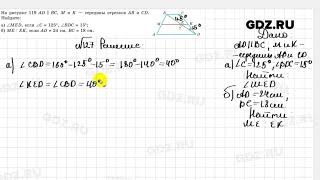 На рисунке 118 AD ∥ BC, M и K — середины отрезков AB и CD.
Найдите:
а) ∠MED, если ∠C = 125°, ∠BDC = 15°;
б) ME · EK, если AD = 24 см, BC = 18 см.
GDZ.RU
№127 Решение
Дано
AD∥BC, M и K-
середины AB и CD
а) ∠CBD = 180°-125°-15° = 180°-140°=40°
а) ∠C=125°, ∠BDC=15°
Найти
∠KED = ∠CBD = 40°
∠MED
б) AD=24см,
BC=18см
Найти
ME · EK
GDZ.RU